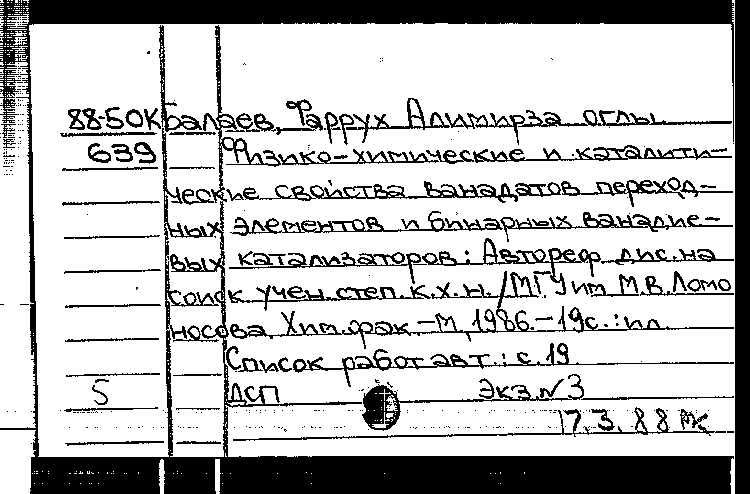 88-50К Балаев, Фаррух Алимирза оглы.
639 Физико-химические и каталити-
ческие свойства ванадатов переход-
ных элементов и бинарных ванадие-
вых катализаторов: Автореф. дис. на
соиск. учен. степ. к.х.н. / МГУ им М.В. Ломо
носова. Хим. фак. – М, 1986. – 19с. : ил.
Список работ авт.: с. 19.
5 ДСП Экз. N 3
17.3.88